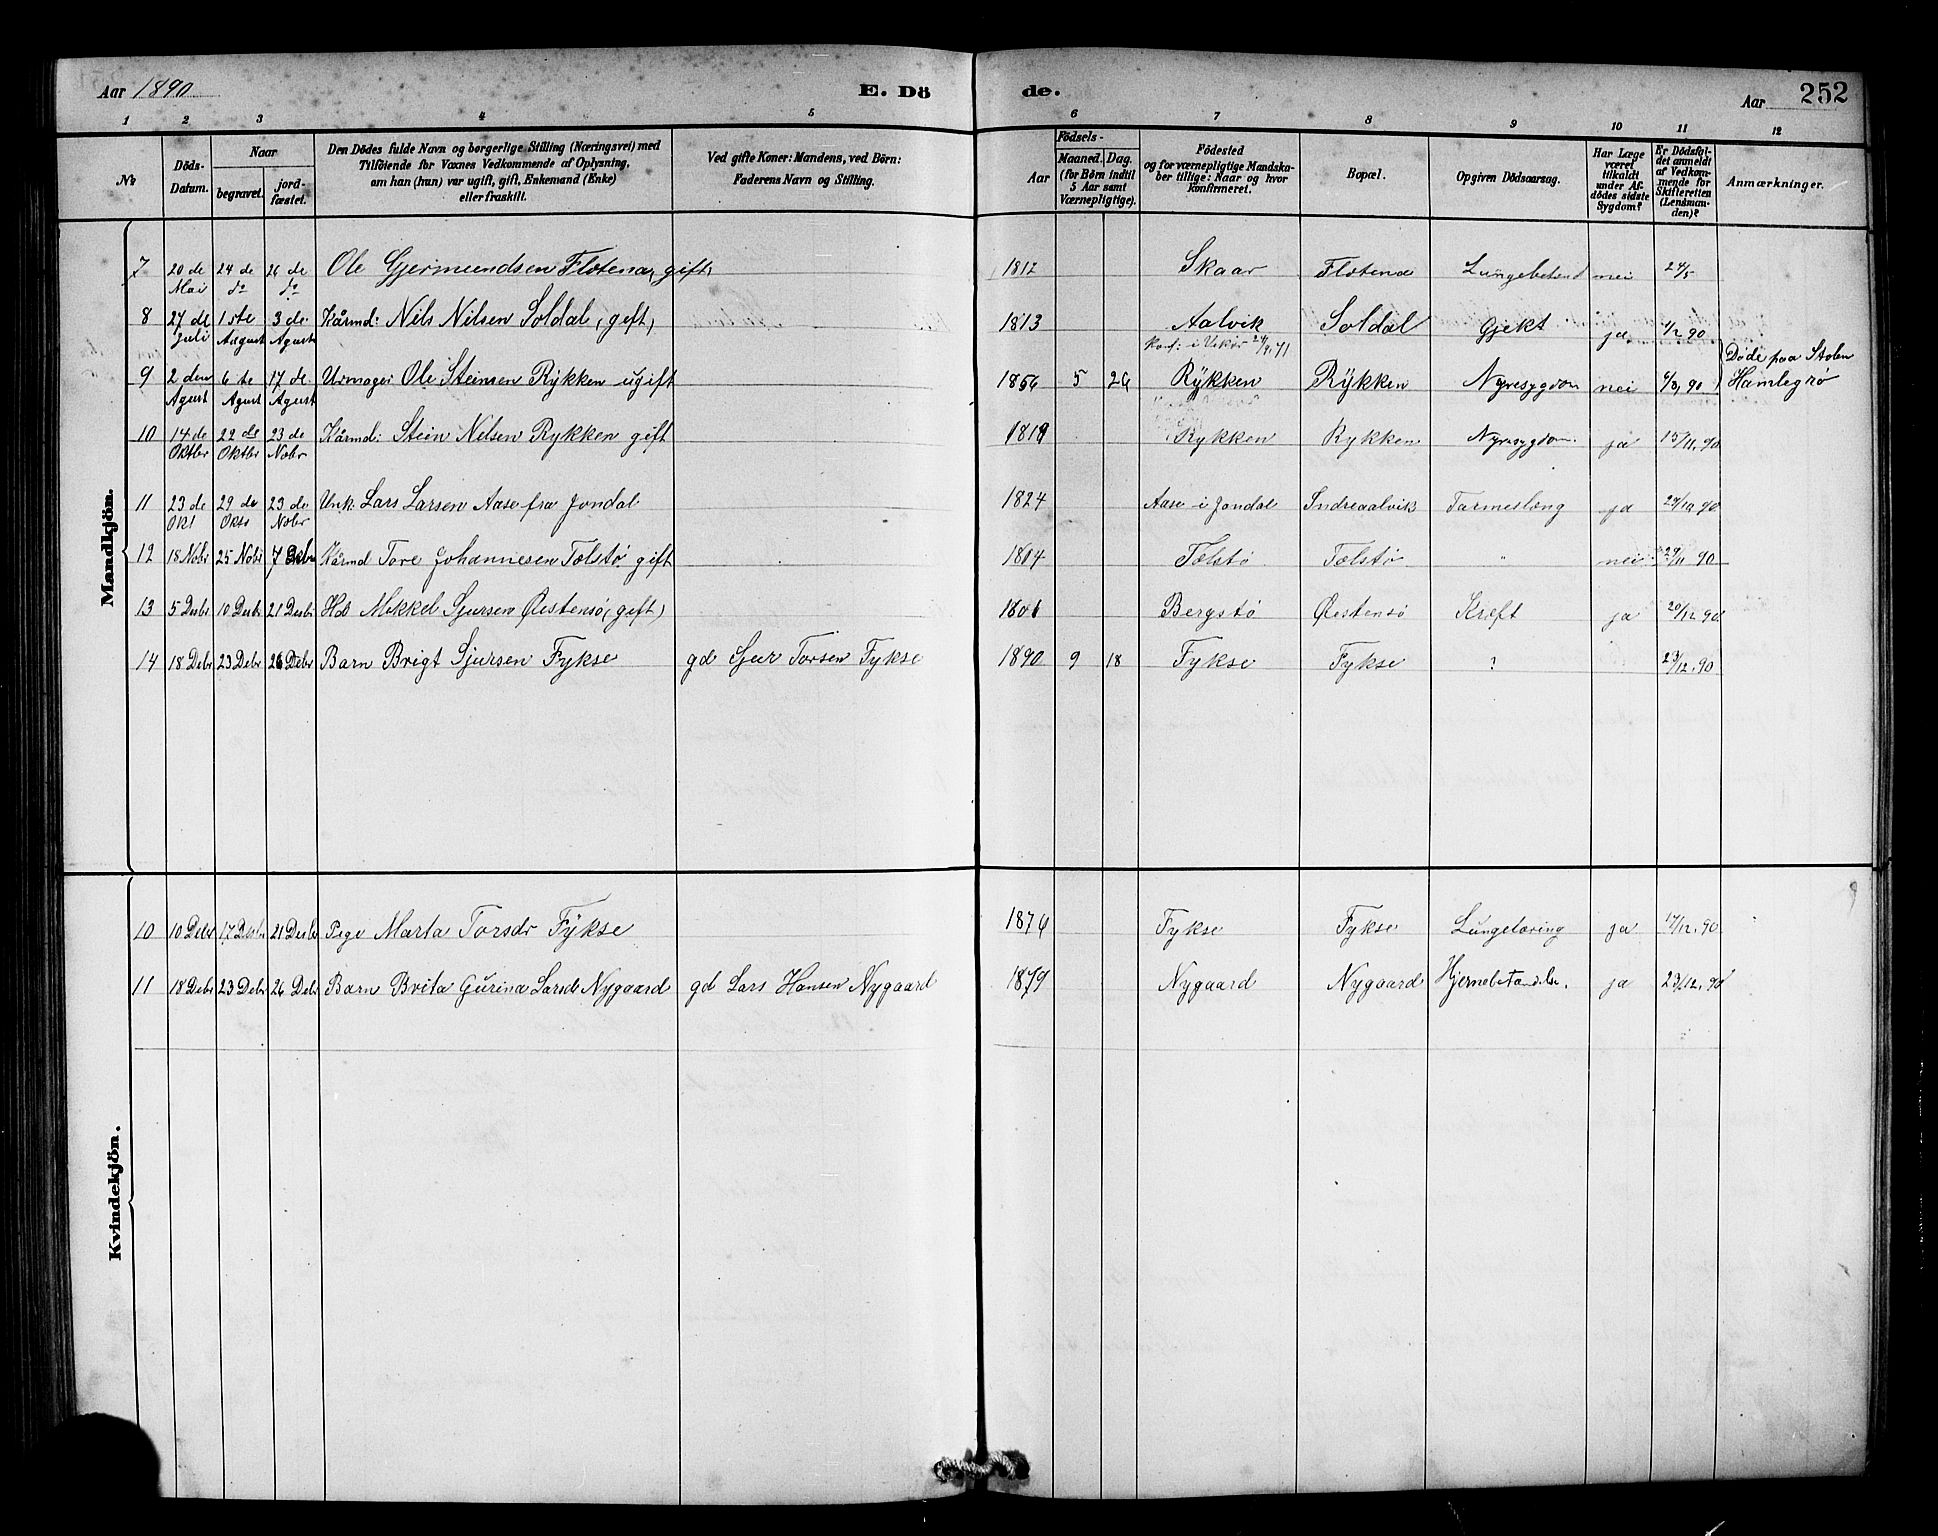 Aar 1890
E. Dö
de.
Aar 252
1 2 3 4 5 6 7 8 9 10 11 12
№
Döds-Datum.
Naar
begravet.
jord-fæstet.
Den Dödes fulde Navn og borgerlige Stilling (Næringsvei) med
Tilföiende for Voxnes Vedkommende af Oplysning,
om han (hun) var ugift, gift, Enkemand (Enke)
eller fraskilt.
Ved gifte Koner: Mandens, ved Börn:
Faderens Navn og Stilling.
Födsels-
Aar
Maaned. Dag.
(for Börn indtil
5 Aar samt
Værnepligtige).
Födested
og for værnepligtige Mandska-
ber tillige: Naar og hvor
Konfirmeret.
Bopæl.
Opgiven Dödsaarsag.
Har Læge
været
tilkaldt
under Af-
dödes sidste
Sygdom?
Er Dödsfal-
det anmeldt
af Vedkom-
mende for
Skifteretten
(Lensman-
den)?
Anmærkninger.
Mandkjön.
7 20 de Mai 24 de do 26 de do Ole Gjermundsen Flotena, gift, 1812 Skaar Flotena Lungebetænd nei 24/5
8 27 de Juli 1 ste August 3 de Agust Kårmd: Nils Nilsen Soldal, (gift) 1813 Aalvik Soldal Gjekt ja 1/2 90
Konf: i Vikør 24/9. 71
9 2 den Agust 6 te Agust 17 de Agust Urmager Ole Steinsen Rykken ugift 1856 5 26 Rykken Rykken Nyresygdom nei 6/8, 90 Døde paa Stolen Hamlegrø
10 14 de Oktbr 22 de Oktbr 23 de Nobr Kårmd: Stein Nilsen Rykken gift 1819 Rykken Rykken Nyresygdom. ja 15/11, 90
11 23 de Okt 29 de Okts 23 de Nobr Unk: Lars Larsen Aase fra Jondal 1824 Aase i Jondal Indreaalvik Tarmeslæng ja 29/10 90
12 18 Nobr 25 Nobr 7 Debr Kårmd Tore Johannesen Tolstø gift 1814 Tolstø Tolstø " nei 29/11 90
13 5 Desbr 10 Desbr 21 Desbr Hd Mikkel Sjursen Øistensø, (gift) 1801 Bergstø Øistensø Kræft ja 20/12 90
14 18 Debr 23 Debr 26 Debr Barn Brigt Sjursen Fykse gd Sjur Torsen Fykse 1890 9 18 Fykse Fykse ? 23/12. 90
Kvindekjön.
10 10 Debr 17 Desbr 21 Desbr Pige Marta Torsdr Fykse 1876 Fykse Fykse Lungetæring ja 17/12. 90
11 18 Debr 23 Debr 26 Debr Barn Brita Gurina Larsdr Nygaard gd Lars Hansen Nygaard 1879 Nygaard Nygaard Hjernebetændelse. ja 23/12. 90